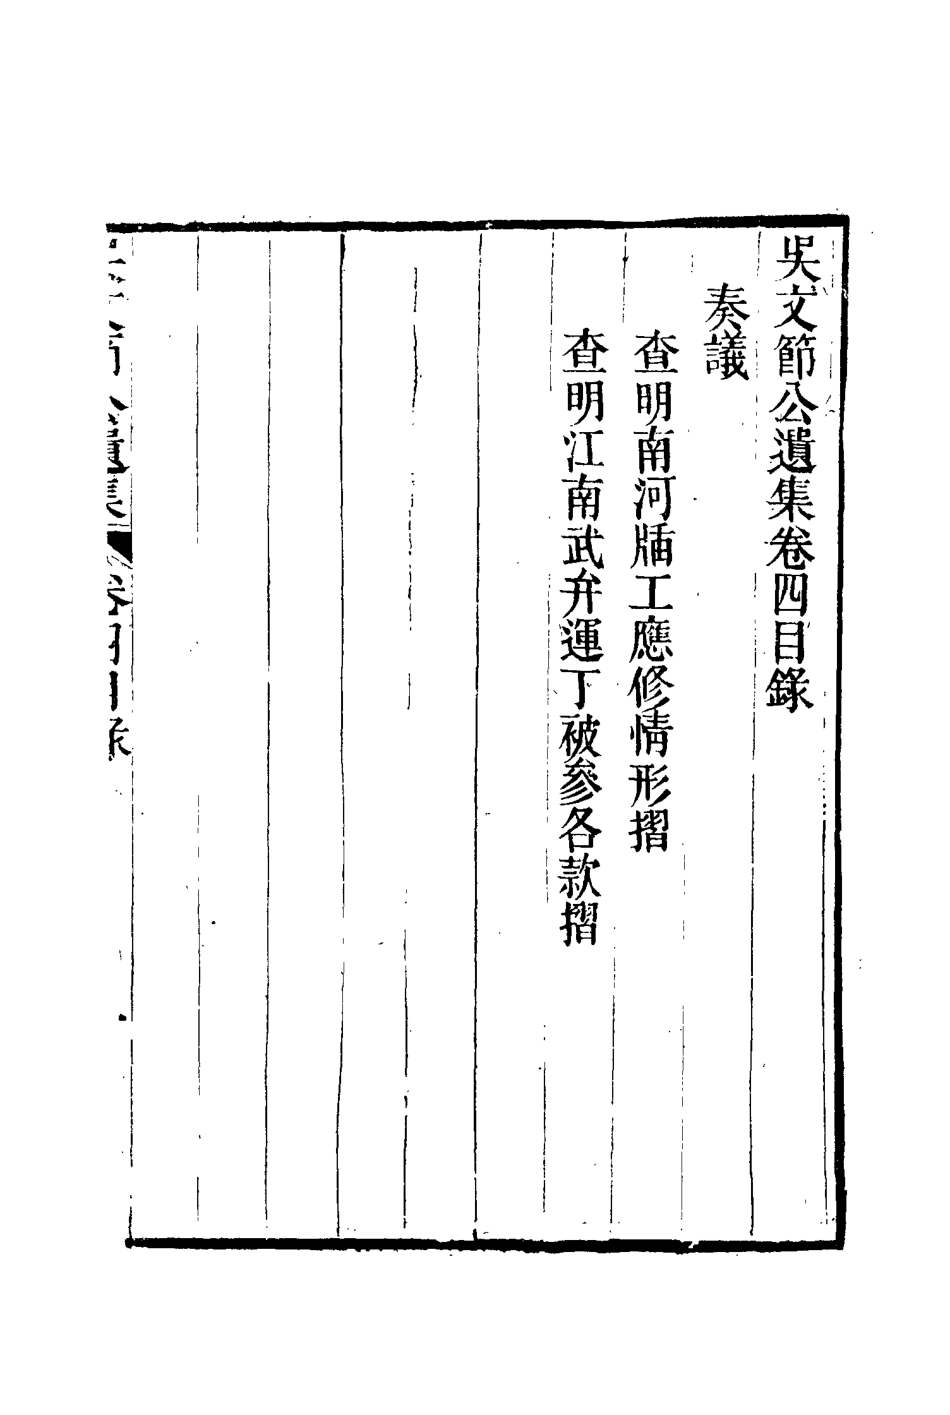 吳文節公遺集卷四目錄
奏議
查明南河牐工應修情形摺
查明江南武弁運丁被參各款摺
吳文節公遺集 卷四目錄